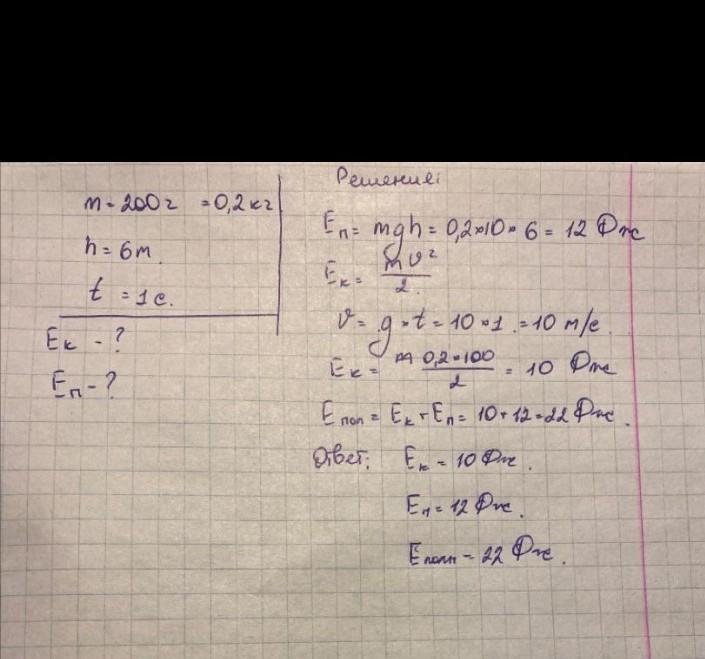 m = 200г = 0,2 кг
h = 6m.
t = 1 c.
Eк - ?
Eп - ?
Решение:
Eп = mgh = 0,2×10×6 = 12 Дж
Eк = mv²/2
v = g×t = 10×1 = 10 m/c.
Eк = 0,2×100/2 = 10 Дж
E пол = Eк + Eп = 10 + 12 = 22 Дж.
Ответ: Eк = 10 Дж.
Eп = 12 Дж.
Eполн = 22 Дж.